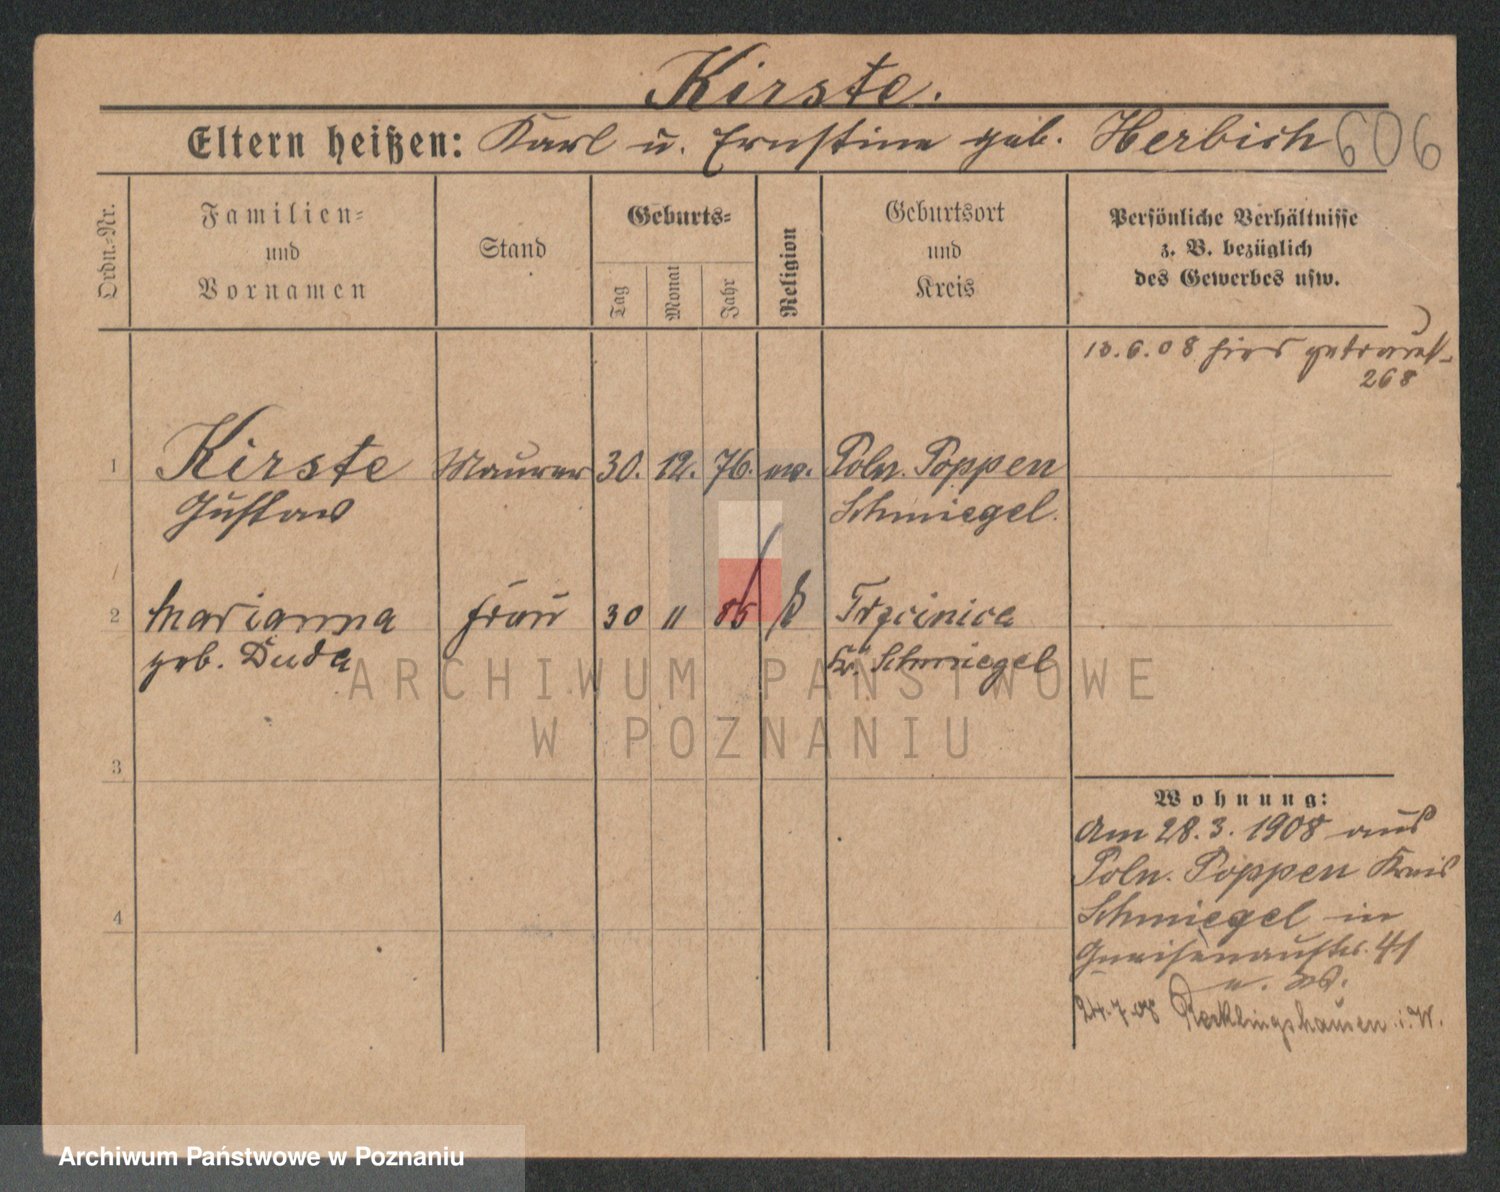 Kirste.
Eltern heißen: Karl u. Ernstine geb. Herbich 606
Ordn.-Nr.
Familien-
und
Vornamen
Stand
Geburts-
Tag
Monat
Jahr
Religion
Geburtsort
und
Kreis
Persönliche Verhältnisse
z. B. bezüglich
des Gewerbes usw.
13.6.08 hier getraut
268
1 Kirste Maurer 30. 12. 76. ev. Poln. Poppen
Gustav Schmiegel.
2 Marianna Frau 30 11 85 k Trzcinica
geb. Duda Kr. Schmiegel
3
4
Wohnung:
Am 28.3.1908 aus
Poln. Poppen Kreis
Schmiegel in
Gneisenaustr. 41
24.7.08 Recklinghausen i.W.
ARCHIWUM PAŃSTWOWE
W POZNANIU
Archiwum Państwowe w Poznaniu